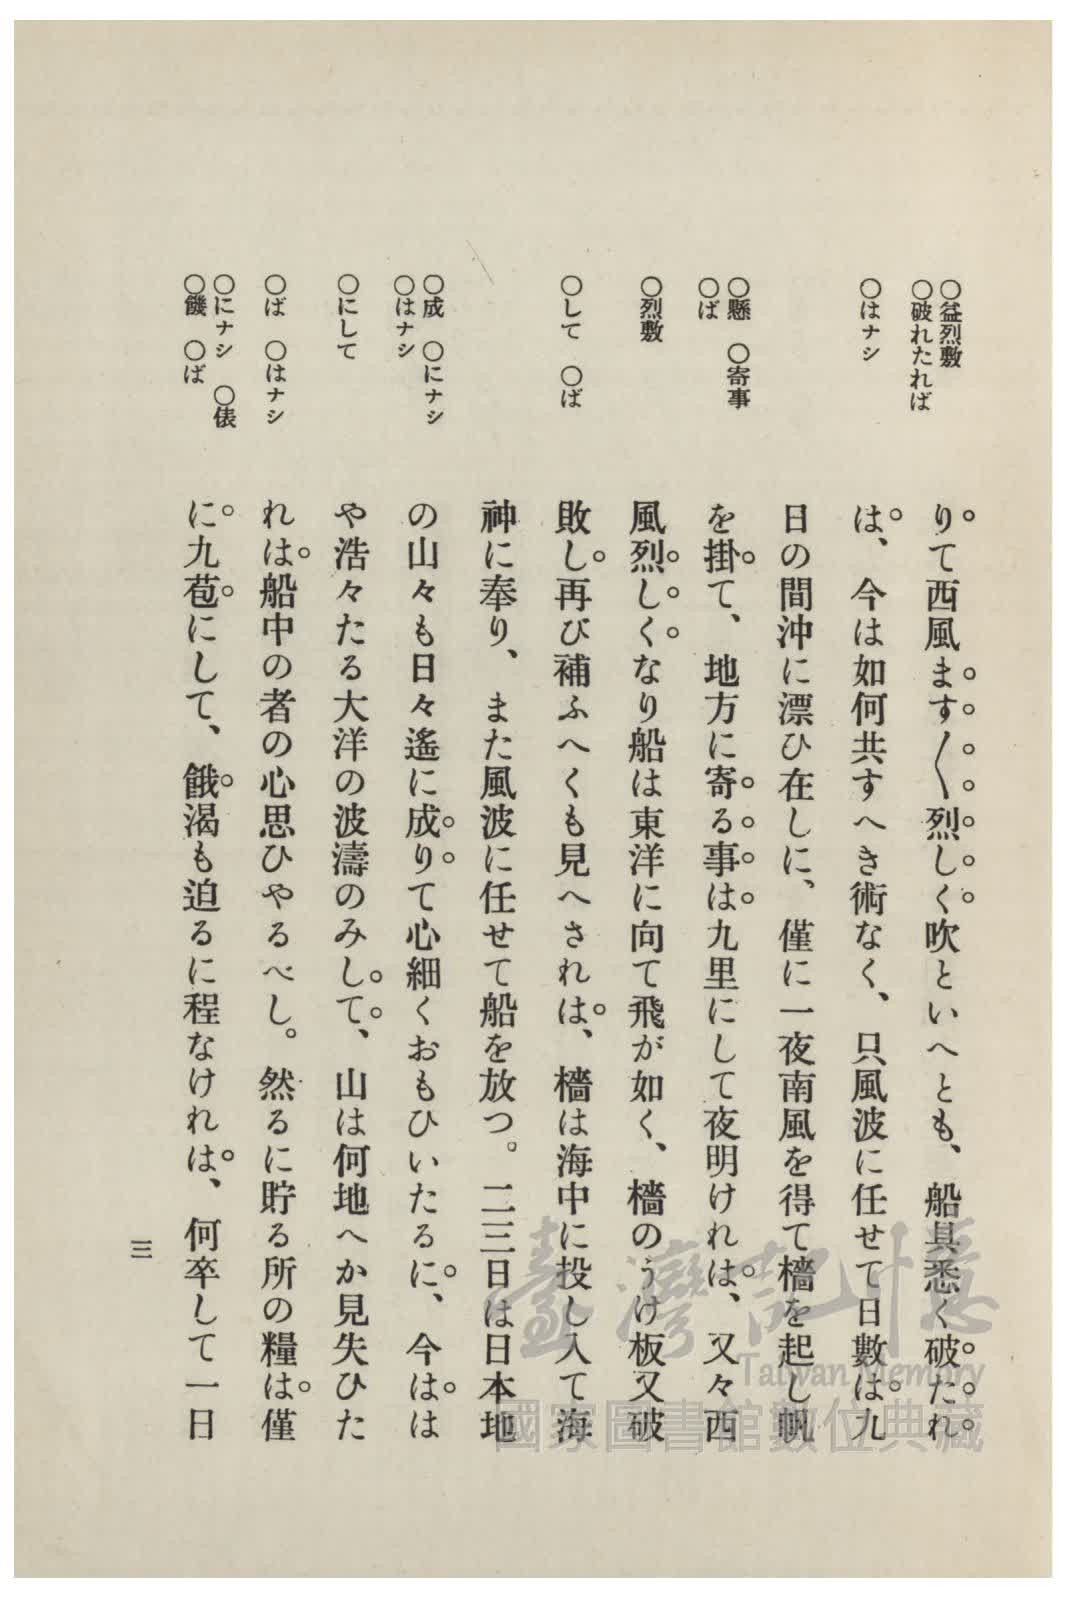 〇益烈敷
〇破れたれば
〇はナシ
〇懸　〇寄事
〇ば
〇烈敷
〇して　〇ば
〇成　〇にナシ
〇はナシ
〇にして
〇ば　〇はナシ
〇にナシ　〇俵
〇饑　〇ば
りて西風ます〱烈しく吹といへとも、船具悉く破たれ
は、今は如何共すへき術なく、只風波に任せて日數は九
日の間沖に漂ひ在しに、僅に一夜南風を得て檣を起し帆
を掛て、地方に寄る事は九里にして夜明けれは、又々西
風烈しくなり船は東洋に向て飛が如く、檣のうけ板又破
敗し再び補ふへくも見へされは、檣は海中に投し入て海
神に奉り、また風波に任せて船を放つ。二三日は日本地
の山々も日々遙に成りて心細くおもひいたるに、今はは
や浩々たる大洋の波濤のみして、山は何地へか見失ひた
れは船中の者の心思ひやるべし。然るに貯る所の糧は僅
に九苞にして、餓渴も迫るに程なけれは、何卒して一日
三
臺灣記憶
Taiwan Memory
國家圖書館數位典藏